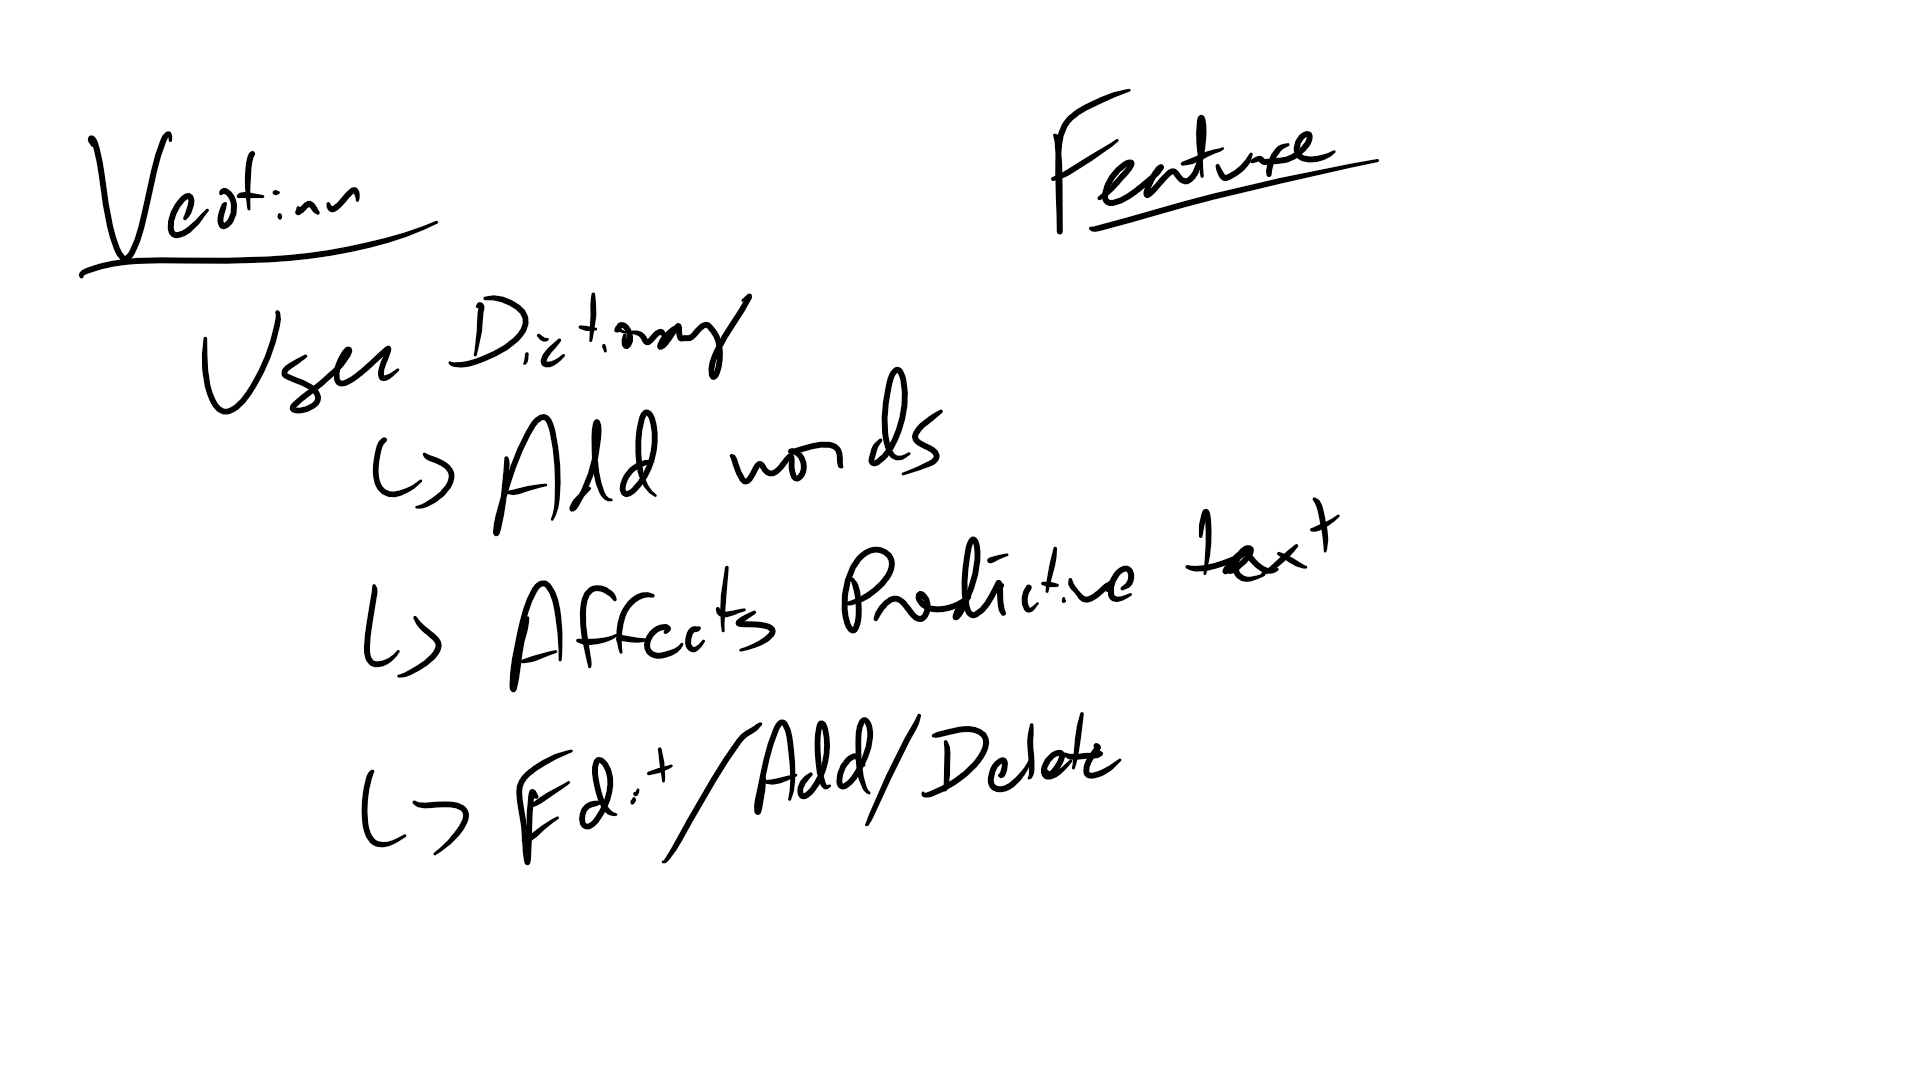 Feature
User Dictionary
↳ Add words
↳ Affects Predictive text
↳ Edit/Add/Delete